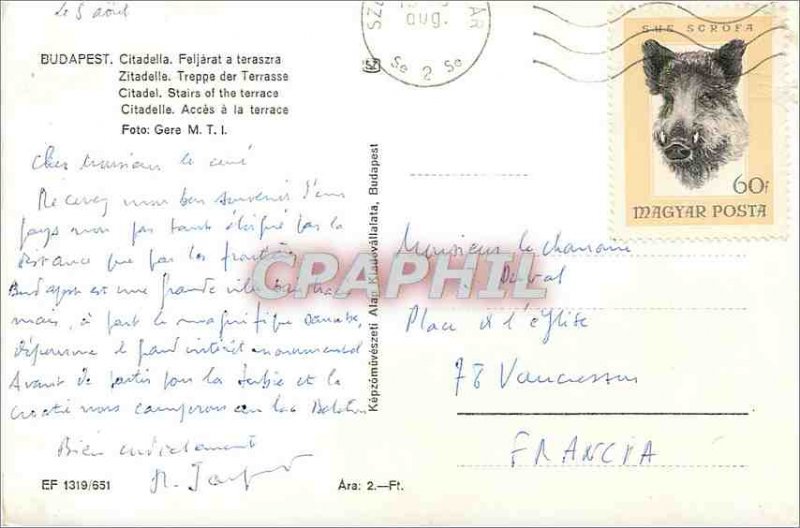 Le 5 août
BUDAPEST. Citadella. Feljárat a teraszra
Zitadelle. Treppe der Terrasse
Citadel. Stairs of the terrace
Citadelle. Accès à la terrace
Foto: Gere M. T. I.
Cher Monsieur le curé
Recevez mon bon souvenir d'un
pays non pas tant éloigné par la
distance que par les frontières
Budapest est une grande ville
mais, à part le magnifique Danube,
dépourvue de grand intérêt monumental
Avant de partir pour la Serbie et la
Croatie nous camperons au lac Balaton
Bien cordialement
EF 1319/651
Ára: 2.—Ft.
Képzőművészeti Alap Kiadóvállalata, Budapest
aug.
Se 2 Se
SUS SCROFA
60f
MAGYAR POSTA
Monsieur le chanoine
Duval
Place de l'église
78 Vaucresson
FRANCIA
CPAPHIL